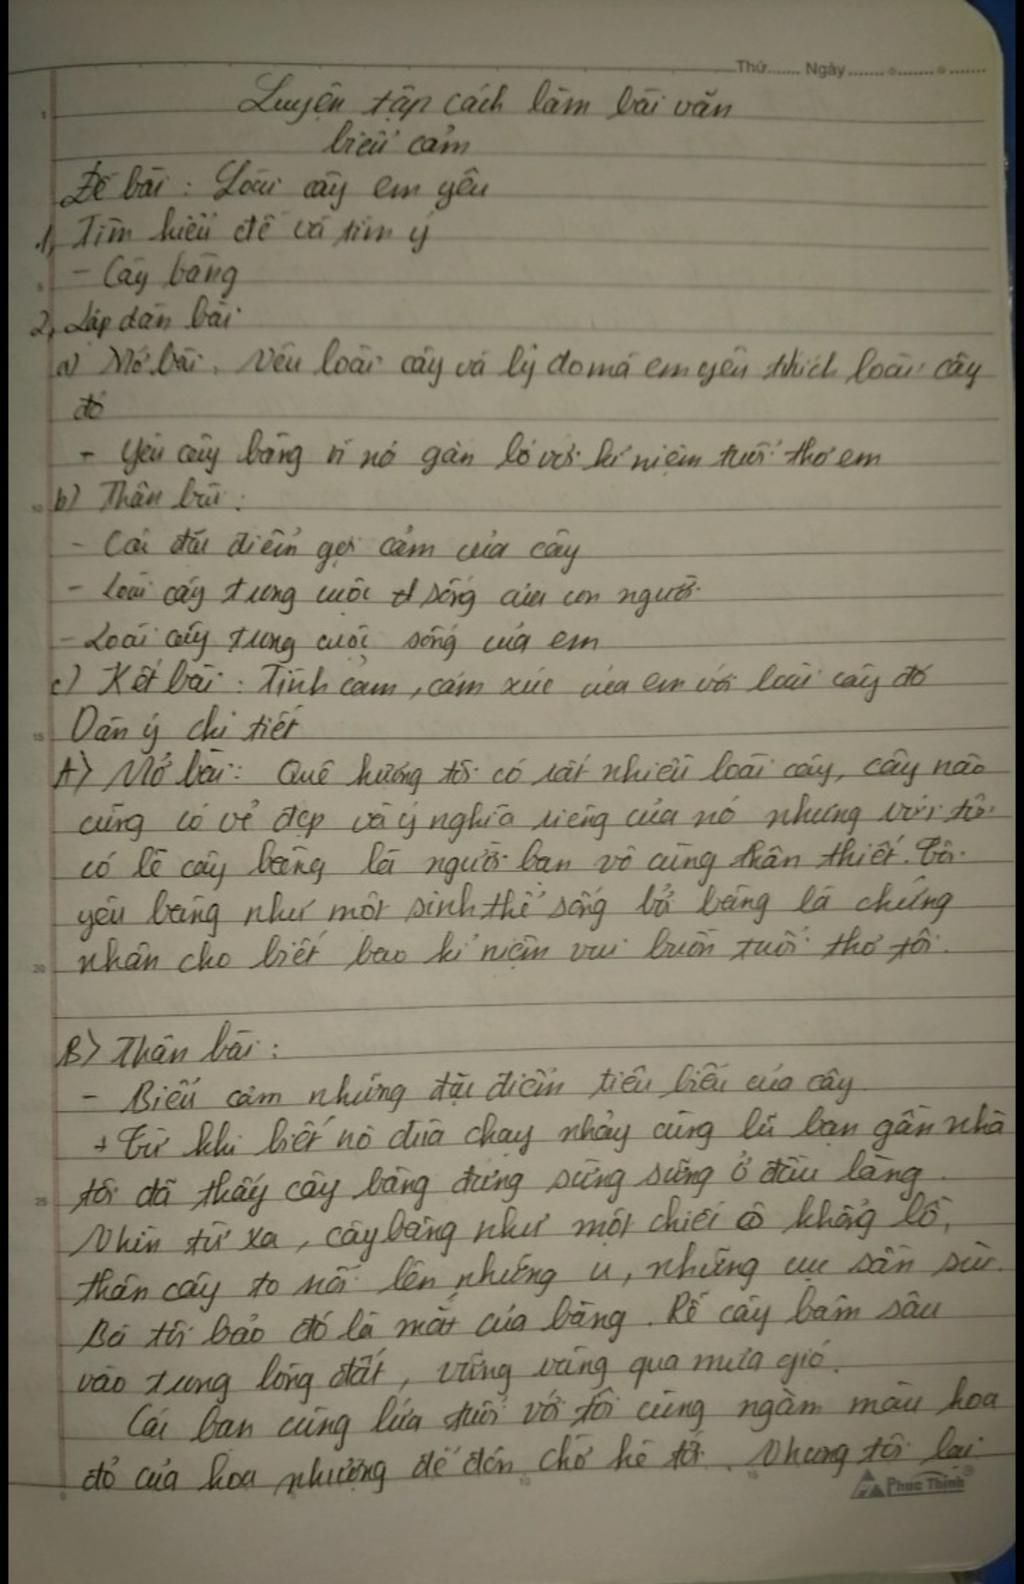 Thứ....... Ngày.......
Luyện tập cách làm bài văn
biểu cảm
Đề bài : Loài cây em yêu
1, Tìm hiểu đề và tìm ý
- Cây bàng
2, Lập dàn bài
a) Mở bài, Nêu loài cây và lý do mà em yêu thích loài cây
đó
- Yêu cây bàng vì nó gắn bó với kỉ niệm tuổi thơ em
b) Thân bài :
- Các đặc điểm gợi cảm của cây
- Loài cây trong cuộc sống của con người
- Loài cây trong cuộc sống của em
c) Kết bài : Tình cảm, cảm xúc của em với loài cây đó
Dàn ý chi tiết
A) Mở bài : Quê hương tôi có rất nhiều loài cây, cây nào
cũng có vẻ đẹp và ý nghĩa riêng của nó nhưng với tôi
có lẽ cây bàng là người bạn vô cùng thân thiết. Tôi
yêu bàng như một sinh thể sống bởi bàng là chứng
nhân cho biết bao kỉ niệm vui buồn tuổi thơ tôi.
B) Thân bài :
- Biểu cảm những đặc điểm tiêu biểu của cây
+ Từ khi biết nô đùa chạy nhảy cùng lũ bạn gần nhà
tôi đã thấy cây bàng đứng sừng sững ở đầu làng.
Nhìn từ xa, cây bàng như một chiếc ô khổng lồ,
thân cây to nổi lên những u, những cục sần sùi.
Bà tôi bảo đó là mắt của bàng. Rễ cây bám sâu
vào trong lòng đất, vững vàng qua mưa gió.
Các bạn cùng lứa tuổi với tôi cùng ngắm màu hoa
đỏ của hoa phượng để đón chờ hè tới. Nhưng tôi lại
Phúc Thịnh